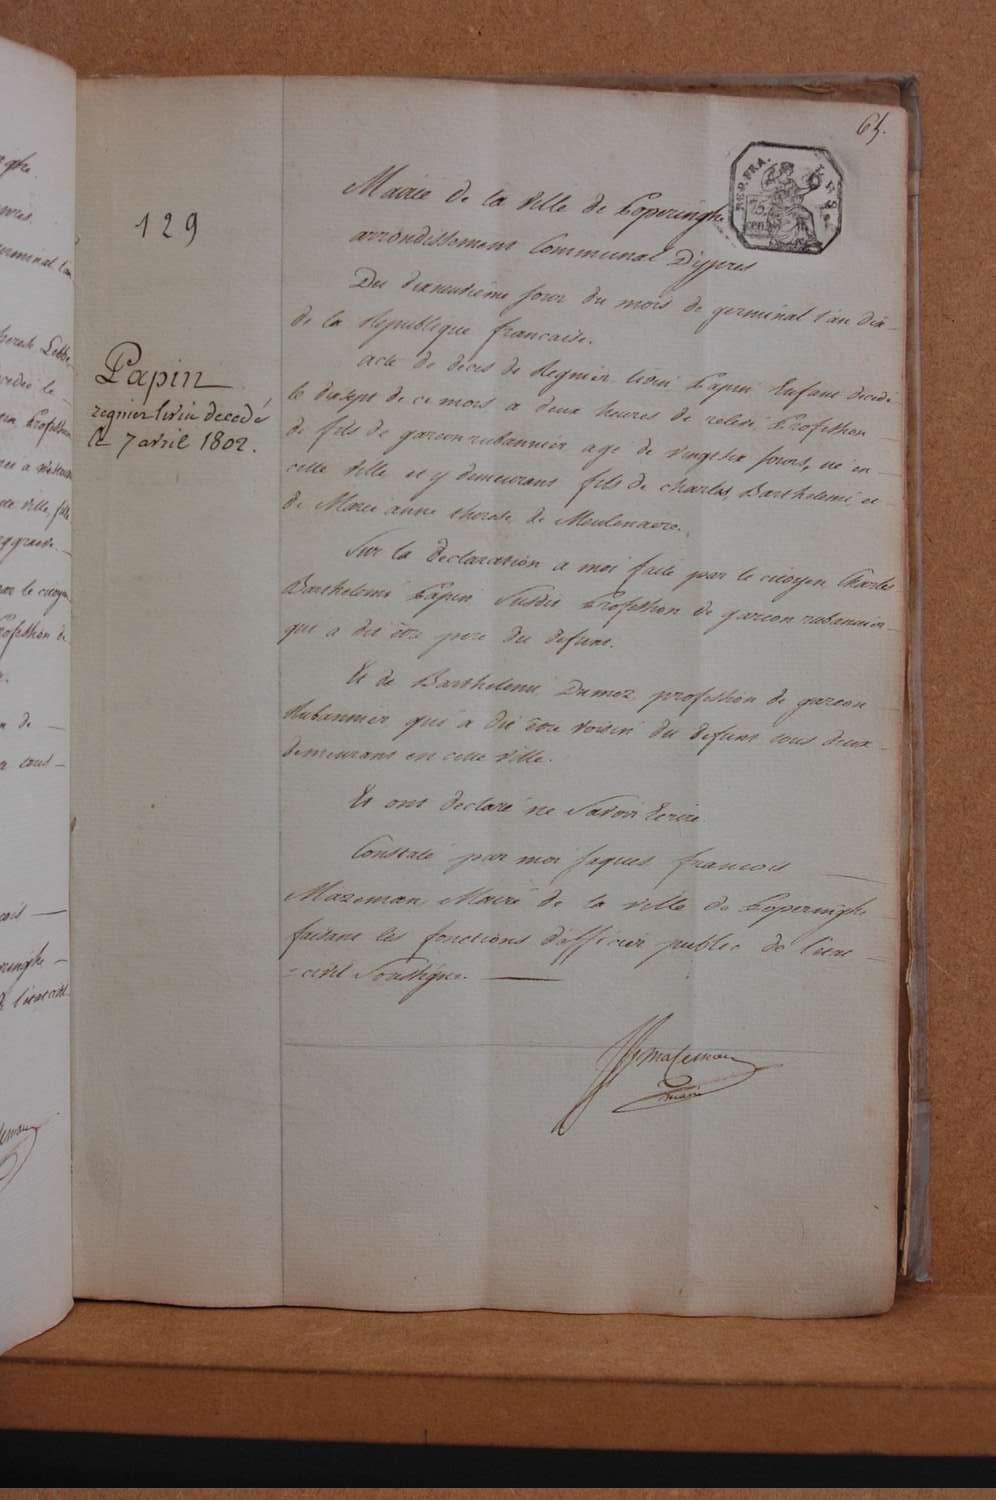 65.
129
Papin
regnier livin decedé
le 7 avril 1802.
REP. FRA.
75
cen
Mairie de la ville de Poperinghe
arrondissement Communal D'ypres
Du dixneuvième jour du mois de germinal l'an dix
de la Republique francaise.
acte de deces de Regnier livin Papin Enfant decedé
le dixsept de ce mois a deux heures de relevé, Profession
de fils de garcon rubannier agé de vingt six jours, né en
cette ville et y demeurant fils de Charles Barthelemi, et
de Marie anne therese, de Meulenaere.
Sur la declaration a moi faite par le citoyen Charles
Barthelemi Papin Susdit Profession de garcon rubannier
qui a dit être pere du defunt.
Et de Barthelemi Dumez profession de garcon
Rubannier qui a dit être voisin du defunt tous deux
demeurans en cette ville.
Et ont declaré ne Savoir Ecrire
Constaté par moi jaques francois
Mazeman Maire de la ville de Poperinghe
faisant les fonctions d'officier public de l'etat
=civil Soussigné.
Mazeman
maire
inghe.
germinal l'an
Profession
ville, fille
le citoyen
rofession de
n de
a tous
inghe
l'etat civil